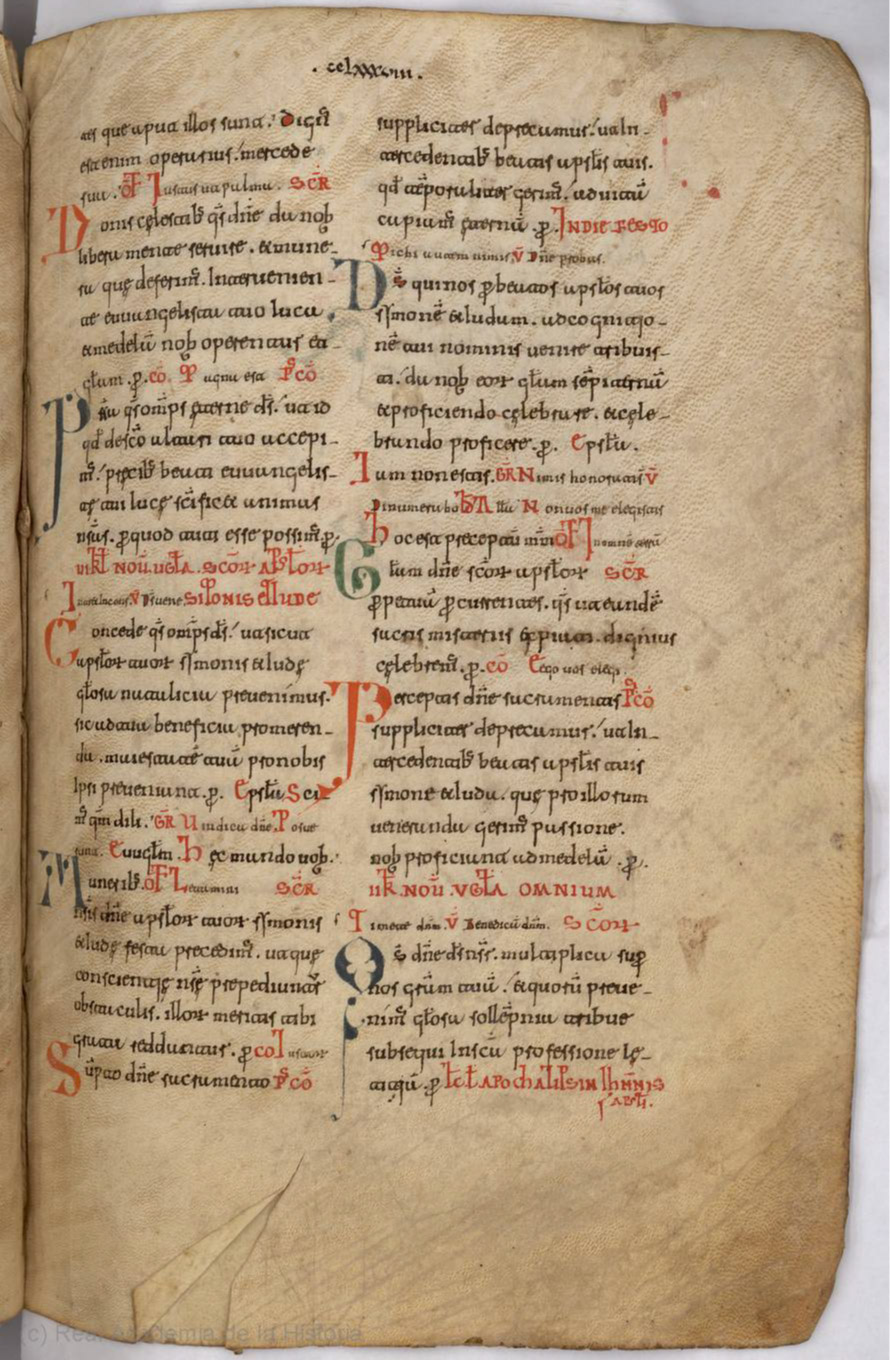 .cclxxxviii.
tes que apud illos sunt. Dign̄
est enim operarius mercede
sua. Of̄ Iustus ut palma. SCR̄
Donis cęlestib; q̄s dn̄e da nob
libera mente seruire. & mune-
ra quę deferim̄. Interuenien-
te euuangelista tuo luca.
& medelā nob operentur et
gl̄am. p̄. cō. Magna est P̄ cō
Presta q̄s omp̄s ęterne ds̄. ut id
qd̄ de sc̄o altari tuo accepi-
m̄. precib; beati euuangelis-
tę tui lucę sc̄ificet animas
nr̄as. p̄ quod tuti esse possim̄. p̄.
VI KL̄ NOU. UGL̄A. SCOR APL̄OR
Intret in cons. V̄ Ds̄ uene. SIMONIS ET IUDE
Concede q̄s omp̄s ds̄. ut sicut
apl̄or tuor symonis & iudę
gl̄osa natalicia preuenimus.
sic ad tua beneficia promeren-
da. maiestatē tuā pro nobis
ipsi preueniant. p̄. Epsl̄a. Sci-
m̄ qm̄ dili. GR̄ Uindica dn̄e. V̄ Posue
runt. Euugl̄m. Hęc mando uob.
Muneribus. Of̄ Letamini SCR̄
nr̄is dn̄e apl̄or tuor symonis
& iudę festa precedim̄. ut quę
conscientię nr̄ę prepediuntur
obstaculis. illor meritis tibi
grata reddantur. p̄ co Iustor
Sūpto dn̄e sacramento P̄ CŌ
suppliciter deprecamur. ut in-
tercedentib; beatis apl̄is tuis.
qd̄ tēporaliter gerim̄. ad uitā
capiam̄ ęternā. p̄. IN DIE FESTO
Michi autem nimis V̄ Dn̄e probas.
Ds̄ qui nos p̄ beatos apl̄os tuos
symonē & iudam. ad cognitio-
nē tui nominis uenire tribuis-
ti. da nob eor gl̄am sēpiternā
& proficiendo cęlebrare. & cęle-
brando proficere. p̄. Epsl̄a.
Iam non estis. GR̄ Nimis honorati s. V̄
Dinumerabo. All̄a Non uos me elegistis
Hoc est preceptū meū Of̄ In omnē terrā
Gl̄iam dn̄e sc̄or apl̄or SCR̄
p̄petuā p̄currentes. q̄s ut eandē
sacris misteriis expiati. dignius
cęlebrem̄. p̄. cō Ego uos elegi.
Perceptis dn̄e sacramentis P̄ cō
suppliciter deprecamur. ut in-
tercedentib; beatis apl̄is tuis
symone & iuda. quę pro illorum
ueneranda gerim̄ passione.
nob proficiant ad medelā. p̄.
II K̄. NOU. VGL̄A OMNIUM
Timete dnm. V̄ Benedicā dnm. SCOR
Om̄s dn̄e ds̄ nr̄. multiplica sup̄
nos grām tuā. & quorū preue-
nim̄ gl̄osa sollēpnia tribue
subsequi in sc̄a professione lę-
ticiā. p̄ L̄C̄ L̄ APOCHALIPSIN IOH̄NNIS
APL̄I.